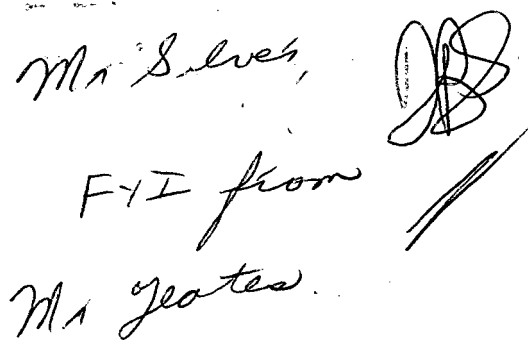 Mr Silver,
FYI from
Mr Yeates.